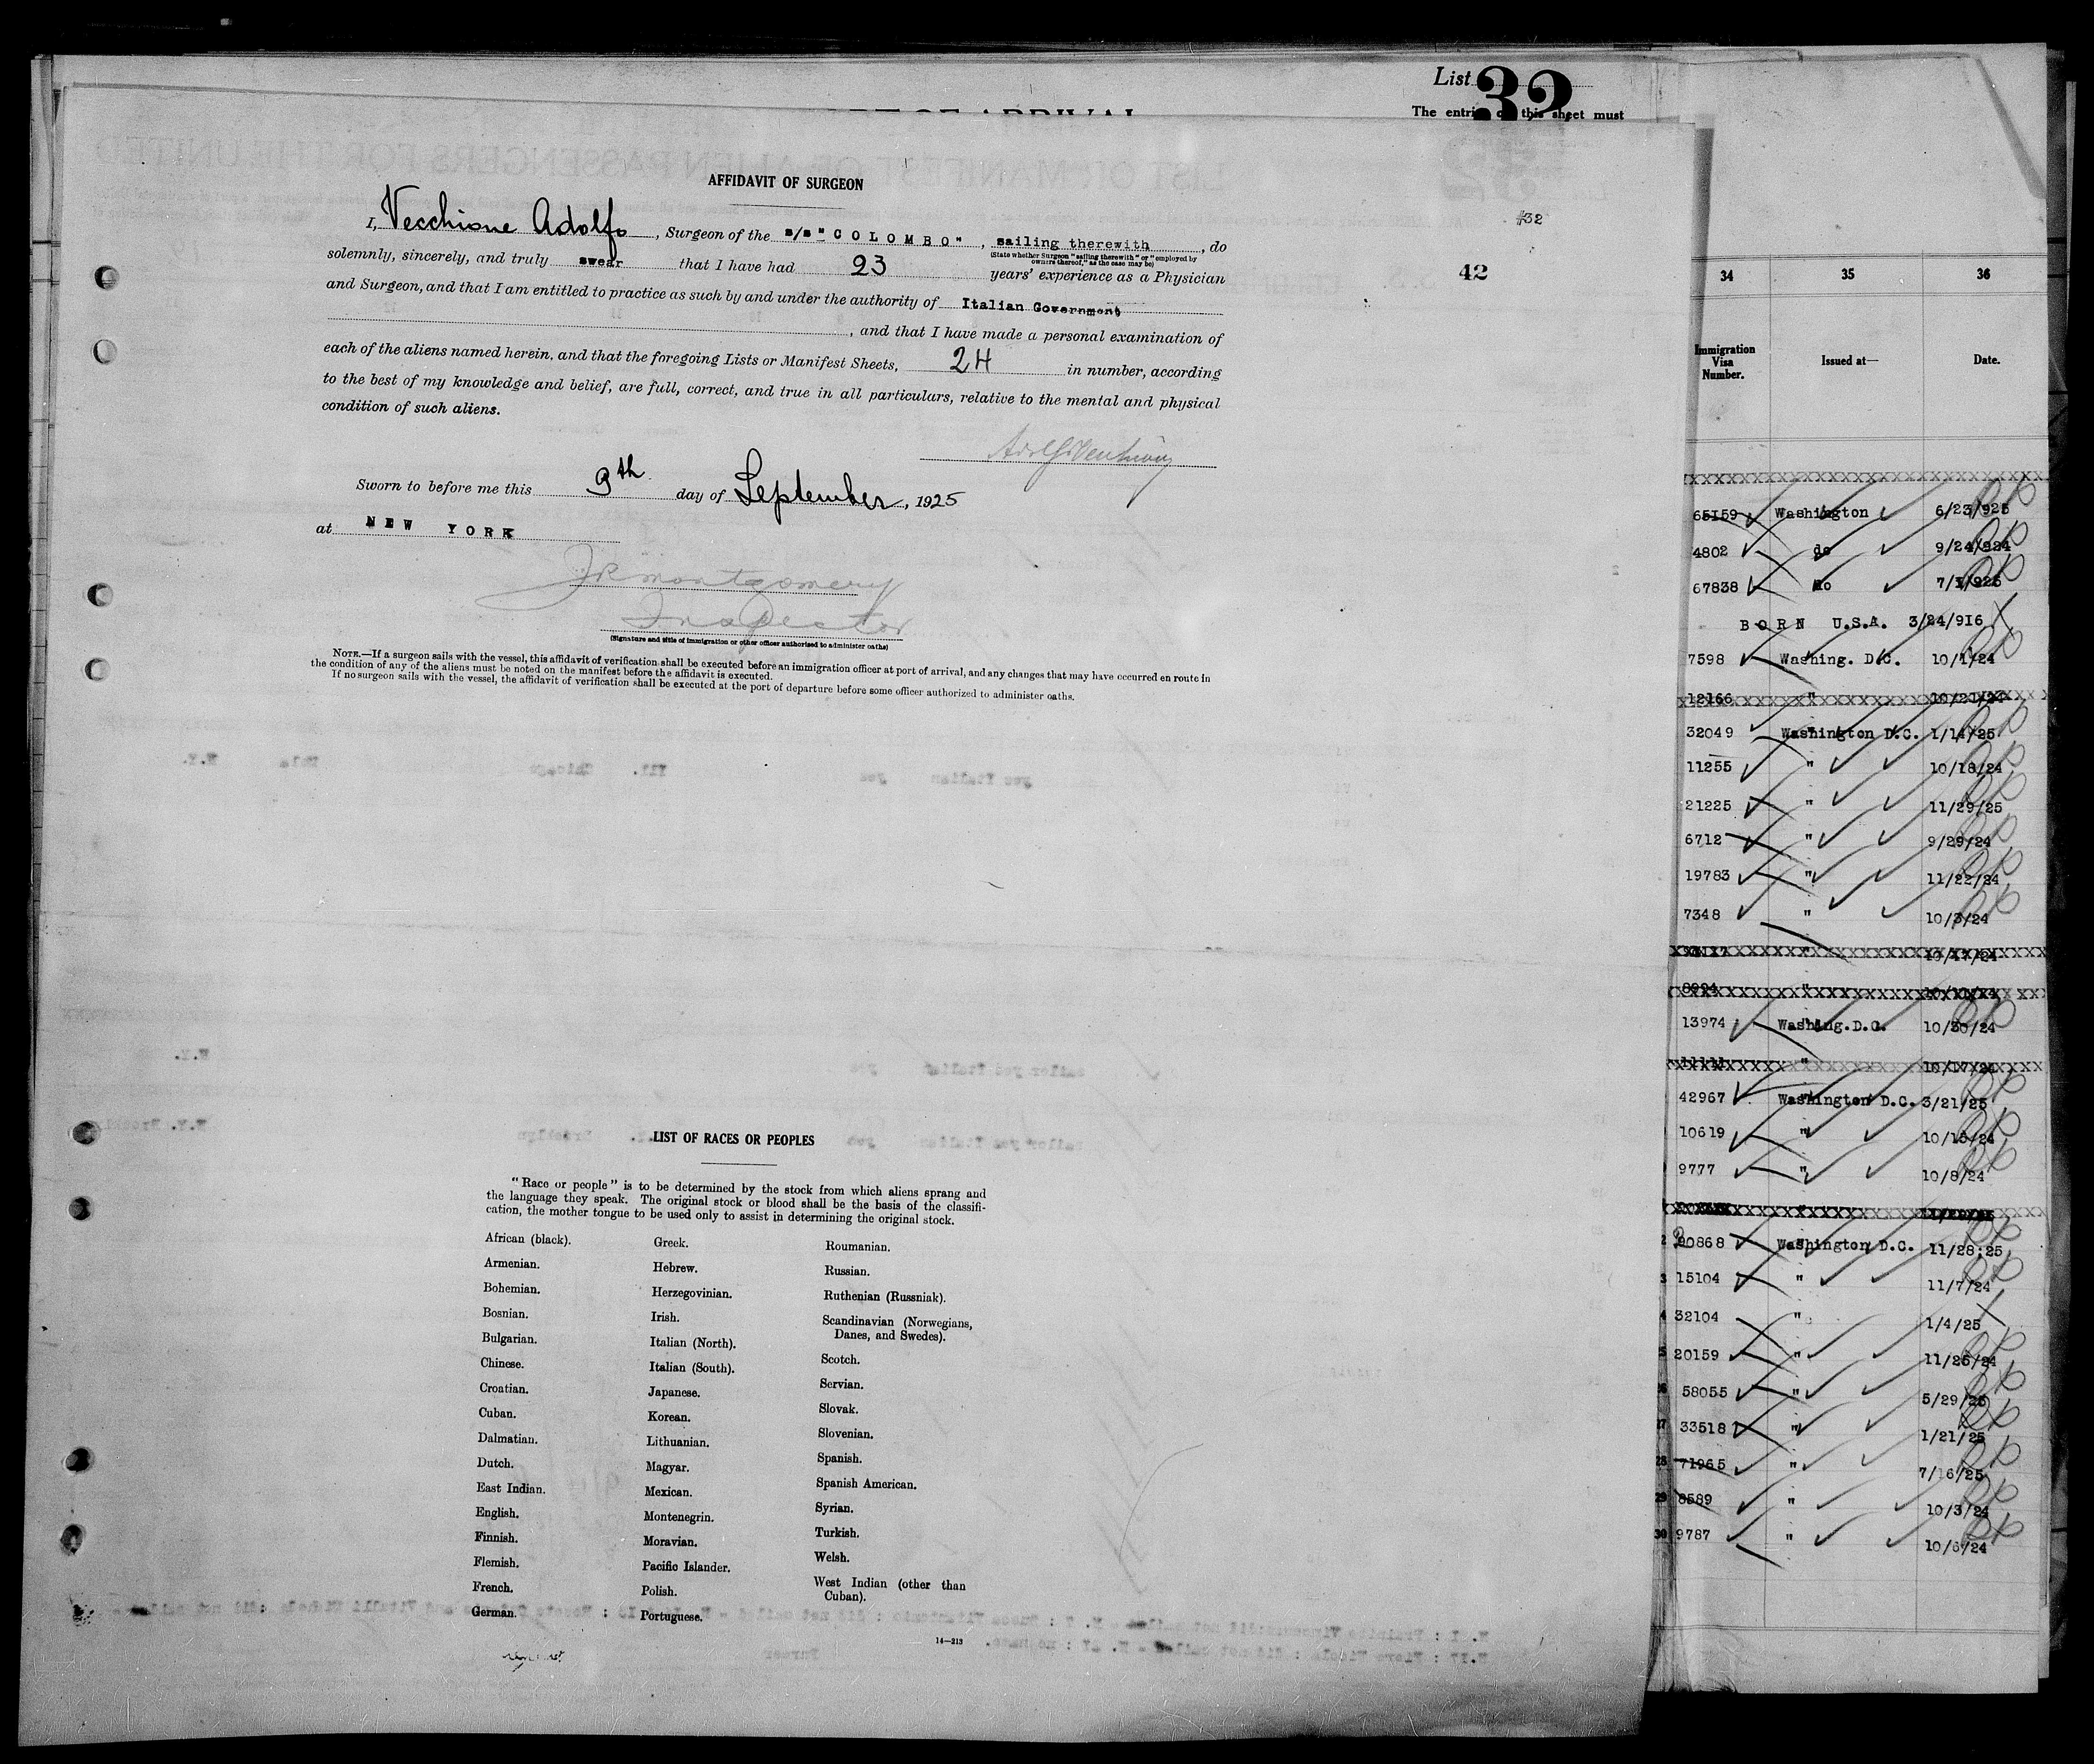 List 32
The entries on this sheet must
AFFIDAVIT OF SURGEON
#32
I, Vecchione Adolfo, Surgeon of the s/s "COLOMBO", sailing therewith, do
(State whether Surgeon "sailing therewith" or "employed by
owners thereof," as the case may be)
solemnly, sincerely, and truly swear that I have had 23 years' experience as a Physician
42
and Surgeon, and that I am entitled to practice as such by and under the authority of Italian Government
, and that I have made a personal examination of
each of the aliens named herein, and that the foregoing Lists or Manifest Sheets, 24 in number, according
to the best of my knowledge and belief, are full, correct, and true in all particulars, relative to the mental and physical
condition of such aliens.
Sworn to before me this 9th day of September, 1925
at NEW YORK
JR Montgomery
Inspector
(Signature and title of immigration or other officer authorized to administer oaths)
NOTE.—If a surgeon sails with the vessel, this affidavit of verification shall be executed before an immigration officer at port of arrival, and any changes that may have occurred en route in
the condition of any of the aliens must be noted on the manifest before the affidavit is executed.
If no surgeon sails with the vessel, the affidavit of verification shall be executed at the port of departure before some officer authorized to administer oaths.
LIST OF RACES OR PEOPLES
"Race or people" is to be determined by the stock from which aliens sprang and
the language they speak. The original stock or blood shall be the basis of the classifi-
cation, the mother tongue to be used only to assist in determining the original stock.
African (black).
Armenian.
Bohemian.
Bosnian.
Bulgarian.
Chinese.
Croatian.
Cuban.
Dalmatian.
Dutch.
East Indian.
English.
Finnish.
Flemish.
French.
German.
Greek.
Hebrew.
Herzegovinian.
Irish.
Italian (North).
Italian (South).
Japanese.
Korean.
Lithuanian.
Magyar.
Mexican.
Montenegrin.
Moravian.
Pacific Islander.
Polish.
Portuguese.
Roumanian.
Russian.
Ruthenian (Russniak).
Scandinavian (Norwegians,
Danes, and Swedes).
Scotch.
Servian.
Slovak.
Slovenian.
Spanish.
Spanish American.
Syrian.
Turkish.
Welsh.
West Indian (other than
Cuban).
14—213
34 35 36
Immigration
Visa
Number.
Issued at—
Date.
65159 Washington 6/23/925
4802 do 9/24/924
67838 do 7/1/925
BORN U.S.A. 3/24/916
7598 Washing. D.C. 10/1/24
12166 " 10/21/24
32049 Washington D.C. 1/14/25
11255 " 10/18/24
21225 " 11/29/25
6712 " 9/29/24
19783 " 11/22/24
7348 " 10/3/24
" 10/17/24
13974 Washing.D.C. 10/30/24
" 10/17/24
42967 Washington D.C. 3/21/25
10619 " 10/15/24
9777 " 10/8/24
2 90868 Washington D.C. 11/28:25
3 15104 " 11/7/24
4 32104 " 1/4/25
5 20159 " 11/25/24
26 58055 " 5/29/25
27 33518 " 1/21/25
28 71965 " 7/16/25
29 8589 " 10/3/24
30 9787 " 10/6/24